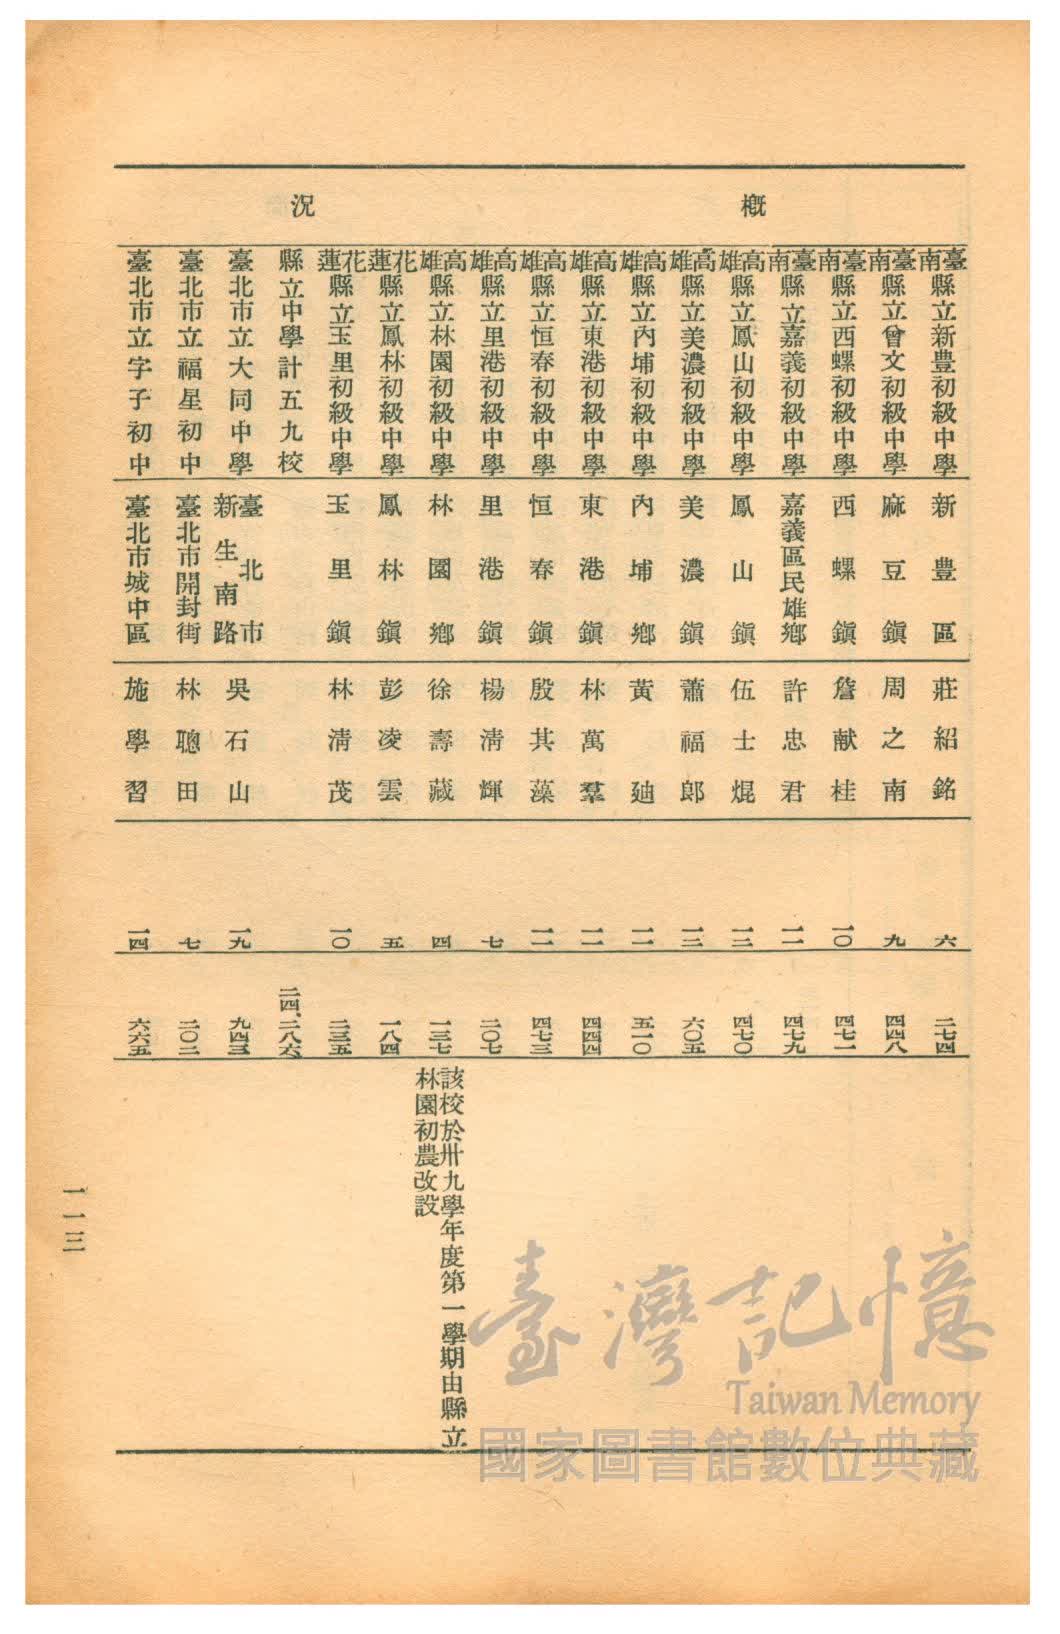 概況
臺南縣立新豐初級中學 新豐區 莊紹銘 六 二七四
臺南縣立曾文初級中學 麻豆鎭 周之南 九 四四八
臺南縣立西螺初級中學 西螺鎭 詹献桂 一〇 四七一
臺南縣立嘉義初級中學 嘉義區民雄鄉 許忠君 一一 四七九
高雄縣立鳳山初級中學 鳳山鎭 伍士焜 一三 四七〇
高雄縣立美濃初級中學 美濃鎭 蕭福郎 一三 六〇五
高雄縣立內埔初級中學 內埔鄉 黃廸 一一 五一〇
高雄縣立東港初級中學 東港鎭 林萬羣 一一 四四四
高雄縣立恒春初級中學 恒春鎭 殷其藻 一二 四七三
高雄縣立里港初級中學 里港鎭 楊淸輝 七 二〇七
高雄縣立林園初級中學 林園鄉 徐壽藏 四 一三七 該校於卅九學年度第一學期由縣立林園初農改設
花蓮縣立鳳林初級中學 鳳林鎭 彭凌雲 五 一八四
花蓮縣立玉里初級中學 玉里鎭 林淸茂 一〇 二三五
縣立中學計五九校 二四、二八六
臺北市立大同中學 臺北市新生南路 吳石山 一九 九四三
臺北市立福星初中 臺北市開封街 林聰田 七 二〇二
臺北市立字子初中 臺北市城中區 施學習 一四 六六五
一一三
臺灣記憶
Taiwan Memory
國家圖書館數位典藏